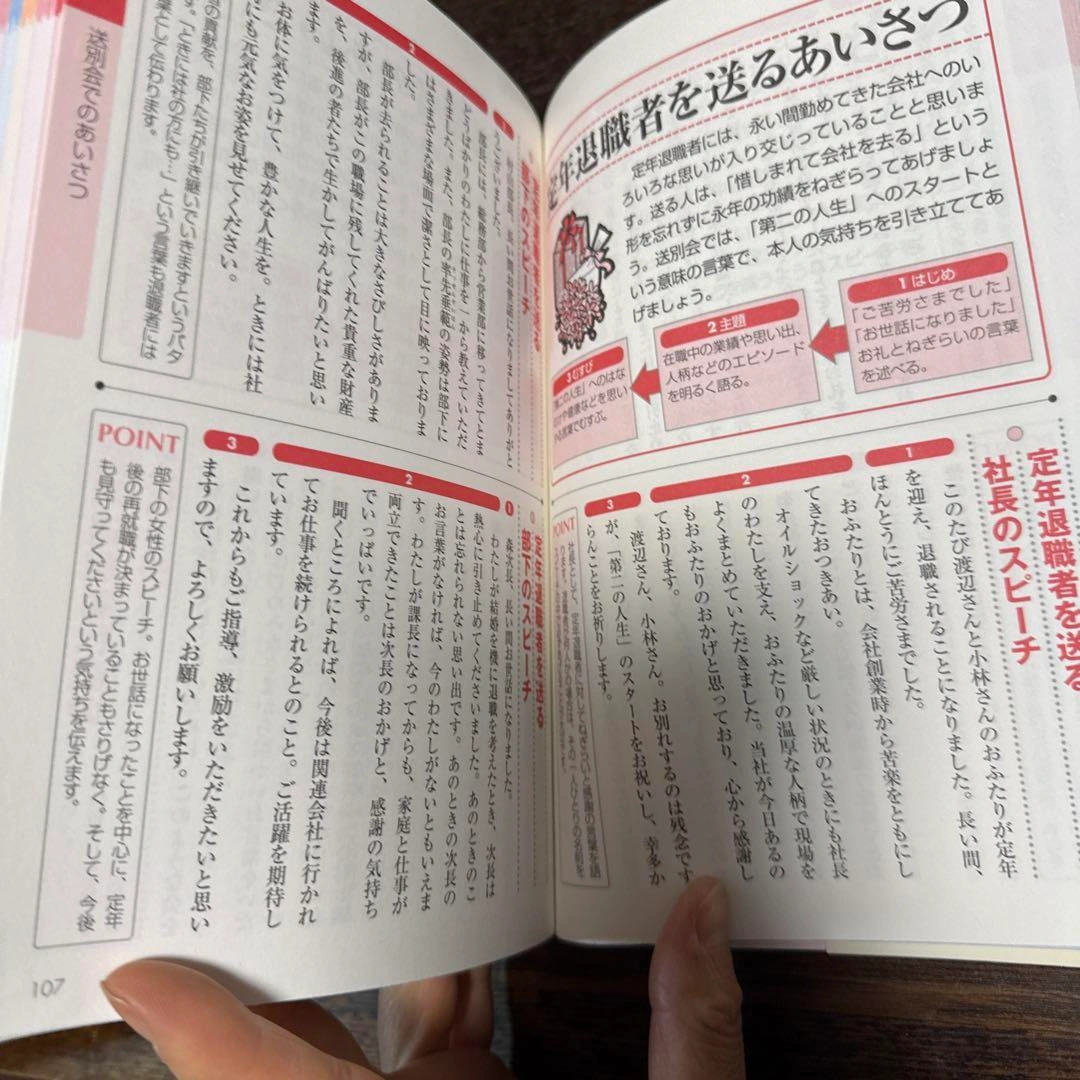 定年退職者を送るあいさつ
定年退職者には、永い間勤めてきた会社へのい
ろいろな思いが入り交じっていることと思いま
す。送る人は、「惜しまれて会社を去る」という
形を忘れずに永年の功績をねぎらってあげましょ
う。送別会では、「第二の人生」へのスタートと
いう意味の言葉で、本人の気持ちを引き立ててあ
げましょう。
1 はじめ
「ご苦労さまでした」
「お世話になりました」
お礼とねぎらいの言葉
を述べる。
2 主題
在職中の業績や思い出、
人柄などのエピソード
を明るく語る。
3 むすび
「第二の人生」へのはな
むけや健康などを思い
やる言葉でむすぶ。
定年退職者を送る
社長のスピーチ
1
このたび渡辺さんと小林さんのおふたりが定年
を迎え、退職されることになりました。長い間、
ほんとうにご苦労さまでした。
2
おふたりとは、会社創業時から苦楽をともにし
てきたおつきあい。
オイルショックなど厳しい状況のときにも社長
のわたしを支え、おふたりの温厚な人柄で現場を
よくまとめていただきました。当社が今日あるの
もおふたりのおかげと思っており、心から感謝し
ております。
3
渡辺さん、小林さん。お別れするのは残念です
が、「第二の人生」のスタートをお祝いし、幸多か
らんことをお祈りします。
POINT
社長として、定年退職者に対してねぎらいと感謝の言葉を語
ります。退職者が何人かの場合は、その一人ひとりの名前を
送別会でのあいさつ
部下のスピーチ
1
部長、長い間お世話になりましてありがと
うございました。
2
部長には、総務部から営業部に移ってきてとま
どうばかりのわたしに仕事を一から教えていただ
きました。また、部長の率先垂範の姿勢は部下に
はさまざまな場面で潔さとして目に映っておりま
した。
部長が去られることは大きなさびしさがありま
すが、部長がこの職場に残してくれた貴重な財産
を、後進の者たちで生かしてがんばりたいと思い
ます。
お体に気をつけて、豊かな人生を。ときには社
にも元気なお姿を見せてください。
の貢献を、部下たちが引き継いでいきますというパタ
す。「ときには社の方にも…」という言葉も退職者には
葉として伝わります。
定年退職者を送る
部下のスピーチ
1
森次長、長い間お世話になりました。
2
わたしが結婚を機に退職を考えたとき、次長は
熱心に引き止めてくださいました。あのときのこ
とは忘れられない思い出です。あのときの次長の
お言葉がなければ、今のわたしがないともいえま
す。わたしが課長になってからも、家庭と仕事が
両立できたことは次長のおかげと、感謝の気持ち
でいっぱいです。
聞くところによれば、今後は関連会社に行かれ
てお仕事を続けられるとのこと。ご活躍を期待し
ています。
3
これからもご指導、激励をいただきたいと思い
ますので、よろしくお願いします。
POINT
部下の女性のスピーチ。お世話になったことを中心に、定年
後の再就職が決まっていることもさりげなく。そして、今後
も見守ってくださいという気持ちを伝えます。
107